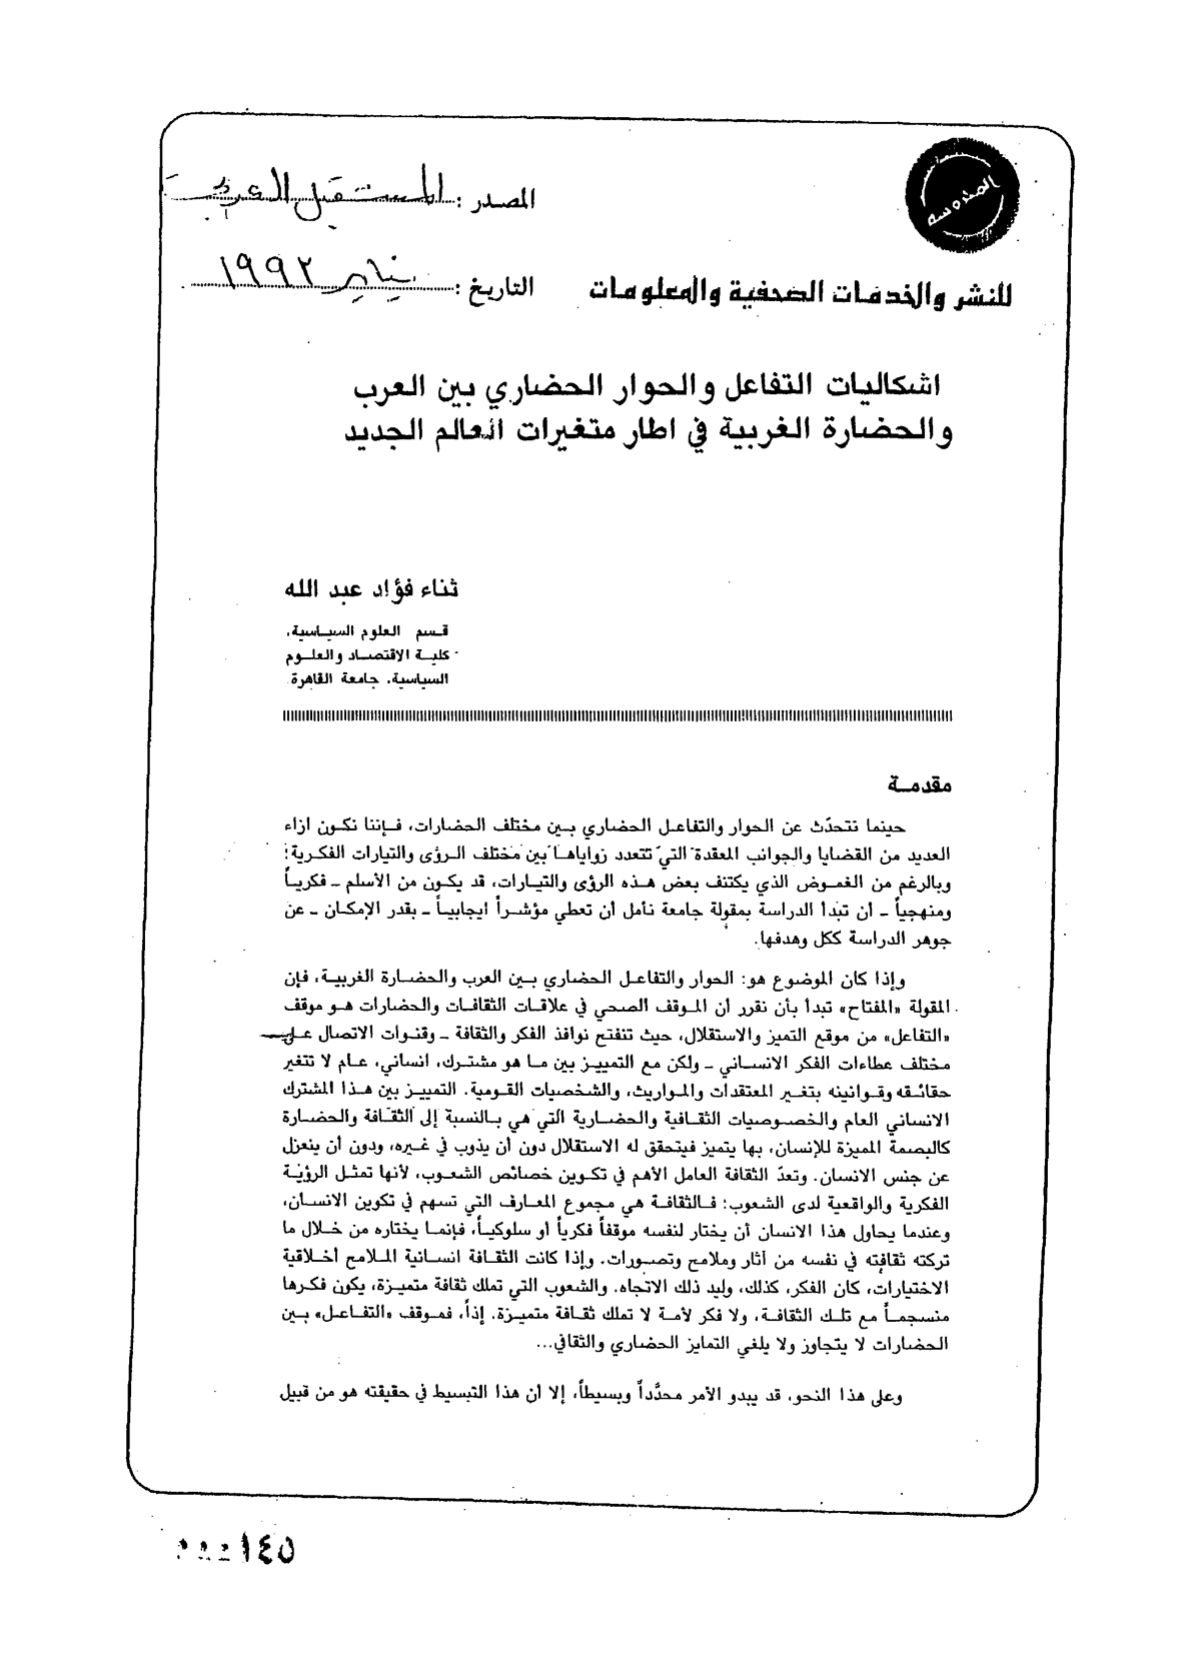 المصدر: المستقبل العربي
للنشر والخدمات الصحفية والمعلومات
التاريخ: يناير ١٩٩٢
اشكاليات التفاعل والحوار الحضاري بين العرب
والحضارة الغربية في اطار متغيرات العالم الجديد
ثناء فؤاد عبد الله
قسم العلوم السياسية،
كلية الاقتصاد والعلوم
السياسية، جامعة القاهرة.
مقدمة
حينما نتحدّث عن الحوار والتفاعل الحضاري بين مختلف الحضارات، فإننا نكون ازاء
العديد من القضايا والجوانب المعقدة التي تتعدد زواياها بين مختلف الرؤى والتيارات الفكرية؛
وبالرغم من الغموض الذي يكتنف بعض هذه الرؤى والتيارات، قد يكون من الأسلم ـ فكرياً
ومنهجياً ـ أن تبدأ الدراسة بمقولة جامعة نأمل أن تعطي مؤشراً ايجابياً ـ بقدر الإمكان ـ عن
جوهر الدراسة ككل وهدفها.
وإذا كان الموضوع هو: الحوار والتفاعل الحضاري بين العرب والحضارة الغربية، فإن
المقولة «المفتاح» تبدأ بأن نقرر أن الموقف الصحي في علاقات الثقافات والحضارات هو موقف
«التفاعل» من موقع التميز والاستقلال، حيث تنفتح نوافذ الفكر والثقافة ـ وقنوات الاتصال على
مختلف عطاءات الفكر الانساني ـ ولكن مع التمييز بين ما هو مشترك، انساني، عام لا تتغير
حقائقه وقوانينه بتغير المعتقدات والمواريث، والشخصيات القومية. التمييز بين هذا المشترك
الانساني العام والخصوصيات الثقافية والحضارية التي هي بالنسبة إلى الثقافة والحضارة
كالبصمة المميزة للإنسان، بها يتميز فيتحقق له الاستقلال دون أن يذوب في غيره، ودون أن ينعزل
عن جنس الانسان. وتعدّ الثقافة العامل الأهم في تكوين خصائص الشعوب، لأنها تمثل الرؤية
الفكرية والواقعية لدى الشعوب؛ فالثقافة هي مجموع المعارف التي تسهم في تكوين الانسان،
وعندما يحاول هذا الانسان أن يختار لنفسه موقفاً فكرياً أو سلوكياً، فإنما يختاره من خلال ما
تركته ثقافته في نفسه من أثار وملامح وتصورات. وإذا كانت الثقافة انسانية الملامح أخلاقية
الاختيارات، كان الفكر، كذلك، وليد ذلك الاتجاه. والشعوب التي تملك ثقافة متميزة، يكون فكرها
منسجماً مع تلك الثقافة، ولا فكر لأمة لا تملك ثقافة متميزة. إذاً، فموقف «التفاعل» بين
الحضارات لا يتجاوز ولا يلغي التمايز الحضاري والثقافي...
وعلى هذا النحو، قد يبدو الأمر محدّداً وبسيطاً، إلا أن هذا التبسيط في حقيقته هو من قبيل
١٤٥